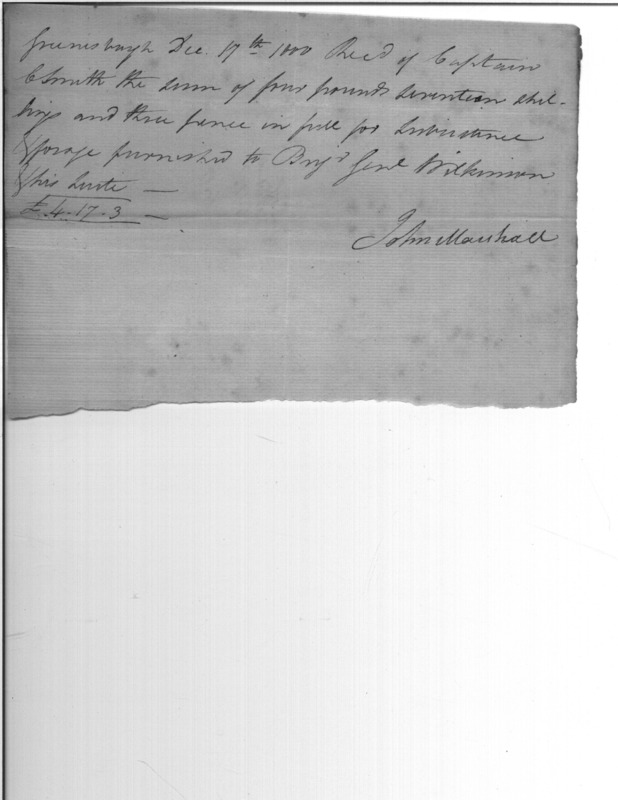 Greensburgh Dec. 17th 1800 Recd of Captain
C Smith the sum of four pounds seventeen shil-
lings and three pence in full for Subsistence
& forage furnished to Brigd Genl Wilkinson
& his Suite —
£ 4.17.3 —
John Marshall